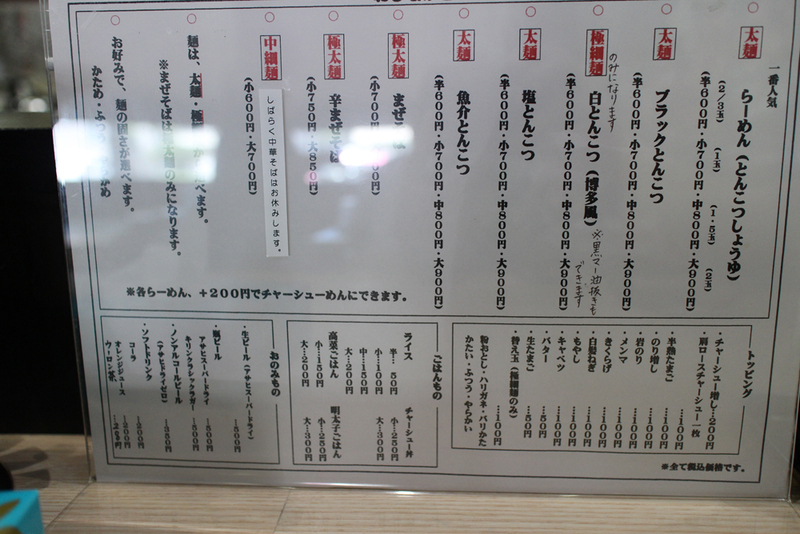 一番人気
太麺
らーめん（とんこつしょうゆ）
（2／3玉）　（1玉）　（1．5玉）　（2玉）
（半600円・小700円・中800円・大900円）
太麺
ブラックとんこつ
（半600円・小700円・中800円・大900円）
極細麺
のみになります
白とんこつ（博多風）
※黒マー油抜きも
できます
（半600円・小700円・中800円・大900円）
太麺
塩とんこつ
（半600円・小700円・中800円・大900円）
太麺
魚介とんこつ
（半600円・小700円・中800円・大900円）
極太麺
まぜそば
（小700円・
極太麺
辛まぜそば
（小750円・大850円）
中細麺
しばらく中華そばはお休みします。
（小600円・大700円）
麺は、太麺・極
※まぜそばは極太麺のみになります。
お好みで、麺の固さが選べます。
かため・ふつう
※各らーめん、+200円でチャーシューめんにできます。
トッピング
・チャーシュー増し…200円
・肩ロースチャーシュー一枚
…100円
・半熟たまご…100円
・のり増し…100円
・岩のり…100円
・メンマ…100円
・きくらげ…100円
・白髪ねぎ…100円
・キャベツ…100円
・もやし…100円
・バター…50円
・生たまご…50円
・替え玉（極細麺のみ）
…100円
粉おとし・ハリガネ・バリかた
かたい・ふつう・やらかい
※全て税込価格です。
ごはんもの
ライス
半…50円
小…100円
中…150円
大…200円
チャーシュー丼
小…250円
大…300円
高菜ごはん
小…150円
大…200円
明太子ごはん
小…250円
大…300円
おのみもの
・生ビール（アサヒスーパードライ）
…500円
・瓶ビール
アサヒスーパードライ
…500円
キリンクラシックラガー
…500円
・ノンアルコールビール
（アサヒドライゼロ）
…350円
・ソフトドリンク
コーラ…200円
オレンジジュース…200円
ウーロン茶